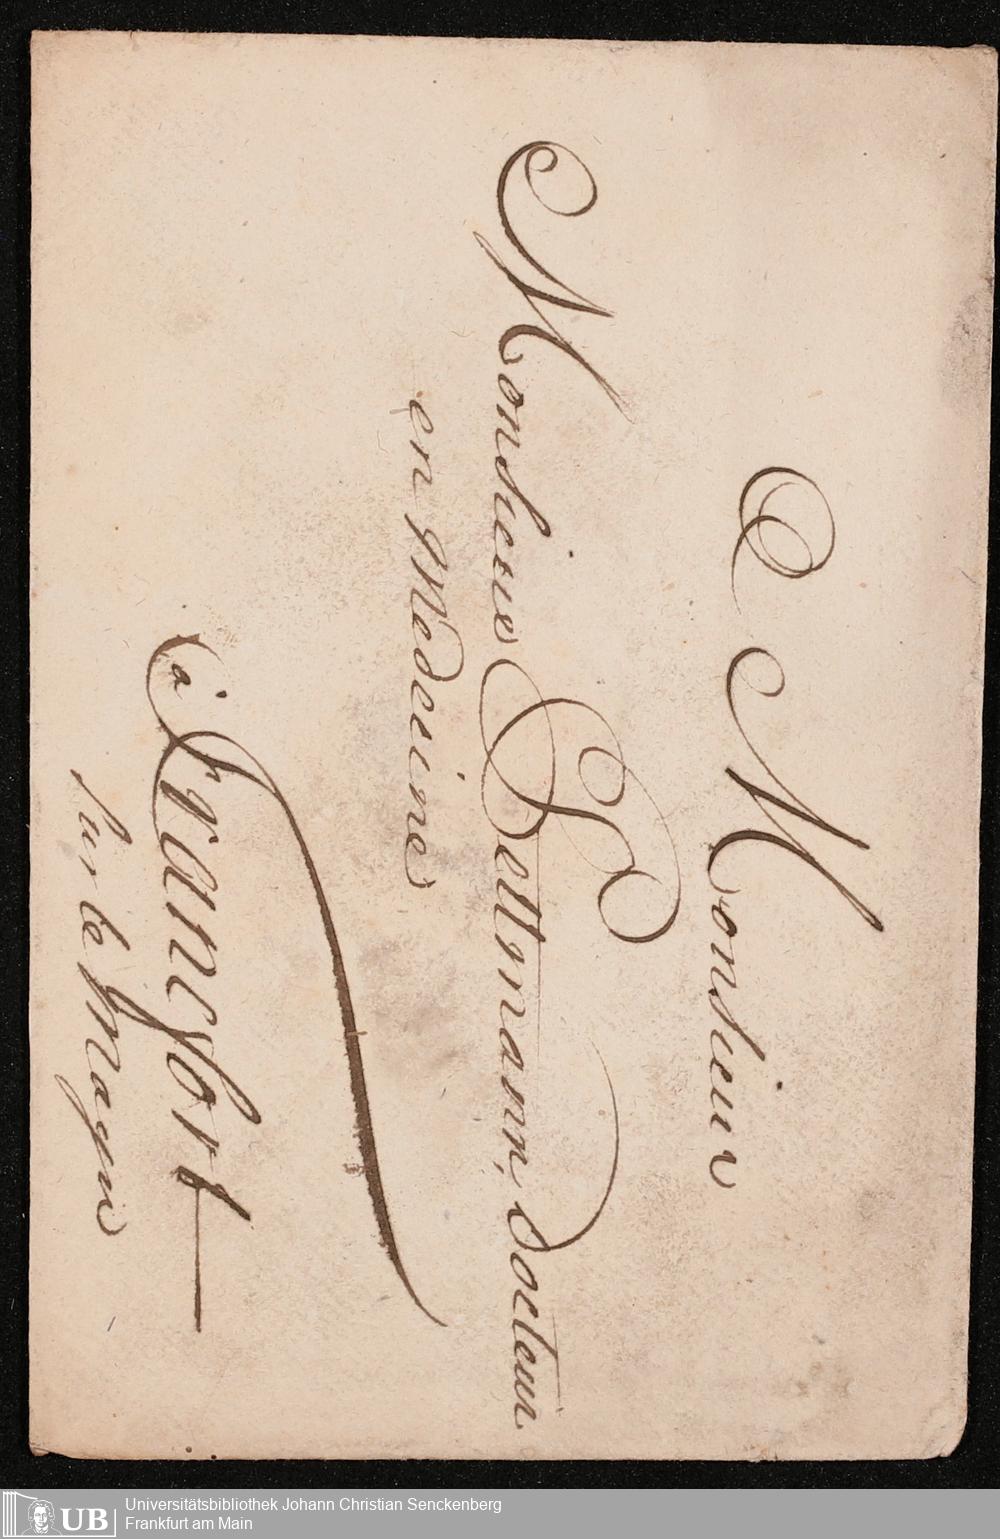 Monsieur
Monsieur Bettmann, docteur
en Medecine
à Francfort
sur le Mayn
UB
Universitätsbibliothek Johann Christian Senckenberg
Frankfurt am Main